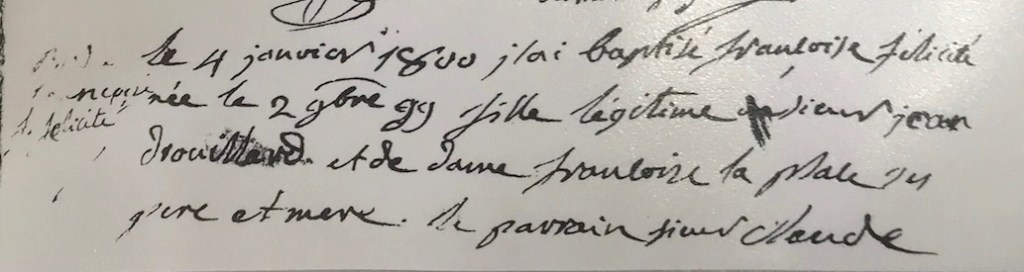 le 4 janvier 1800 j'ai baptisé françoise félicité
félicité née le 2 9bre 99 fille légitime sieur jean
drouillard et de dame françoise la place ses
pere et mere. le parrain sieur claude